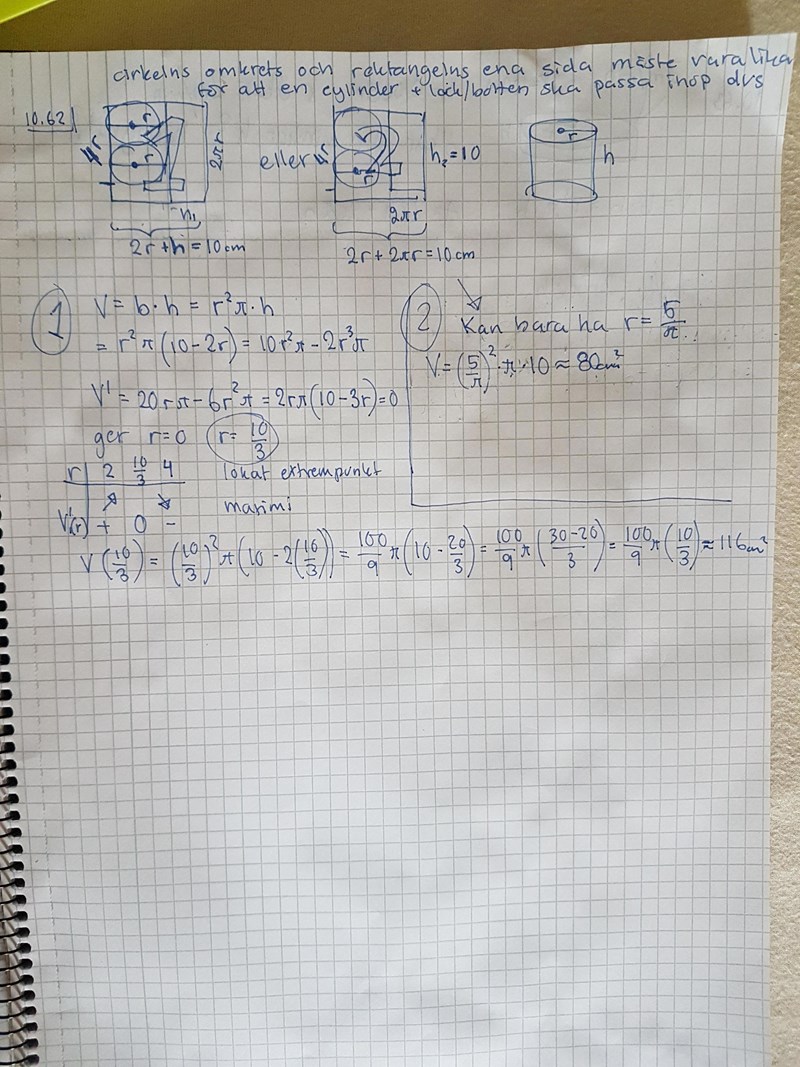 cirkelns omkrets och rektangelns ena sida måste vara lika
för att en cylinder + lock/botten ska passa ihop dvs
10.62
r
r
4r
1
2πr
h₁
2r + h = 10cm
eller
4r
2
r
h₂ = 10
2πr
2r + 2πr = 10cm
r
h
1
V = b·h = r²π·h
= r²π(10-2r) = 10r²π - 2r³π
V' = 20rπ - 6r²π = 2rπ(10-3r) = 0
ger r=0 r= 10/3
r 2 10/3 4 lokal extrempunkt
↗ ↘ maximi
V'(r) + 0 -
V(10/3) = (10/3)²π(10 - 2(10/3)) = 100/9 π(10 - 20/3) = 100/9 π(30-20/3) = 100/9 π(10/3) ≈ 116cm³
2
Kan bara ha r = 5/π
V = (5/π)²·π·10 ≈ 80cm³